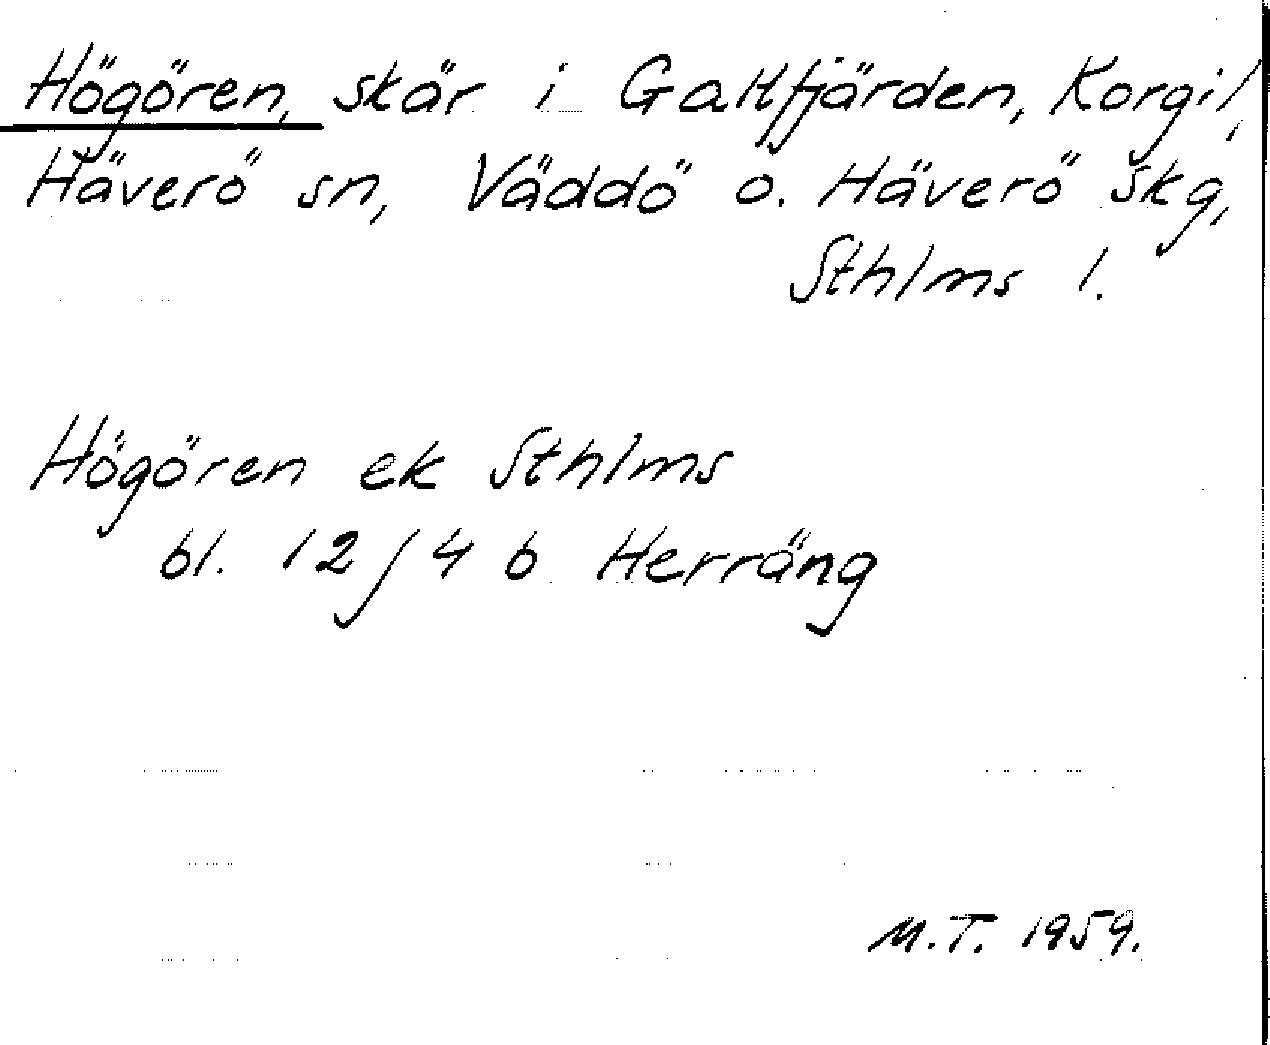 Högören, skär i Galtfjärden, Korgil,
Häverö sn, Väddö o. Häverö skg,
Sthlms l.
Högören ek Sthlms
bl. 12/4 b Herräng
M.T. 1959.